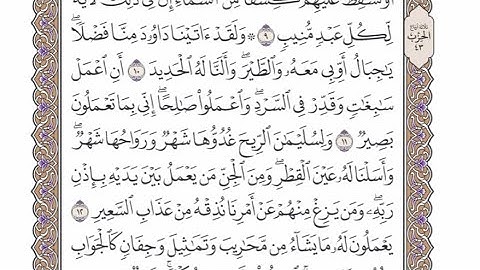 أَوْ نُسْقِطْ عَلَيْهِمْ كِسَفًا مِّنَ السَّمَآءِ إِنَّ فِى ذَٰلِكَ لَءَايَةً
لِّكُلِّ عَبْدٍ مُّنِيبٍ ٩ ۞ وَلَقَدْ ءَاتَيْنَا دَاوُۥدَ مِنَّا فَضْلًا ۖ
يَٰجِبَالُ أَوِّبِى مَعَهُۥ وَالطَّيْرَ ۖ وَأَلَنَّا لَهُ الْحَدِيدَ ١٠ أَنِ اعْمَلْ
سَٰبِغَٰتٍ وَقَدِّرْ فِى السَّرْدِ ۖ وَاعْمَلُوا۟ صَٰلِحًا ۖ إِنِّى بِمَا تَعْمَلُونَ
بَصِيرٌ ١١ وَلِسُلَيْمَٰنَ الرِّيحَ غُدُوُّهَا شَهْرٌ وَرَوَاحُهَا شَهْرٌ ۖ
وَأَسَلْنَا لَهُۥ عَيْنَ الْقِطْرِ ۖ وَمِنَ الْجِنِّ مَن يَعْمَلُ بَيْنَ يَدَيْهِ بِإِذْنِ
رَبِّهِۦ ۖ وَمَن يَزِغْ مِنْهُمْ عَنْ أَمْرِنَا نُذِقْهُ مِنْ عَذَابِ السَّعِيرِ ١٢
يَعْمَلُونَ لَهُۥ مَا يَشَآءُ مِن مَّحَٰرِيبَ وَتَمَٰثِيلَ وَجِفَانٍ كَالْجَوَابِ
الحزب
٤٣